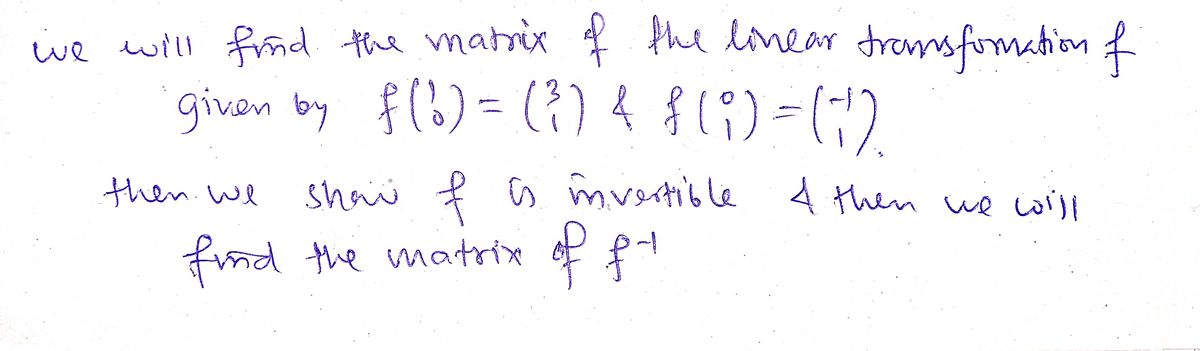 we will find the matrix of the linear transformation f
given by f(1 0) = (3 1) & f(0 1) = (-1 1).
then we show f is invertible & then we will
find the matrix of f-1